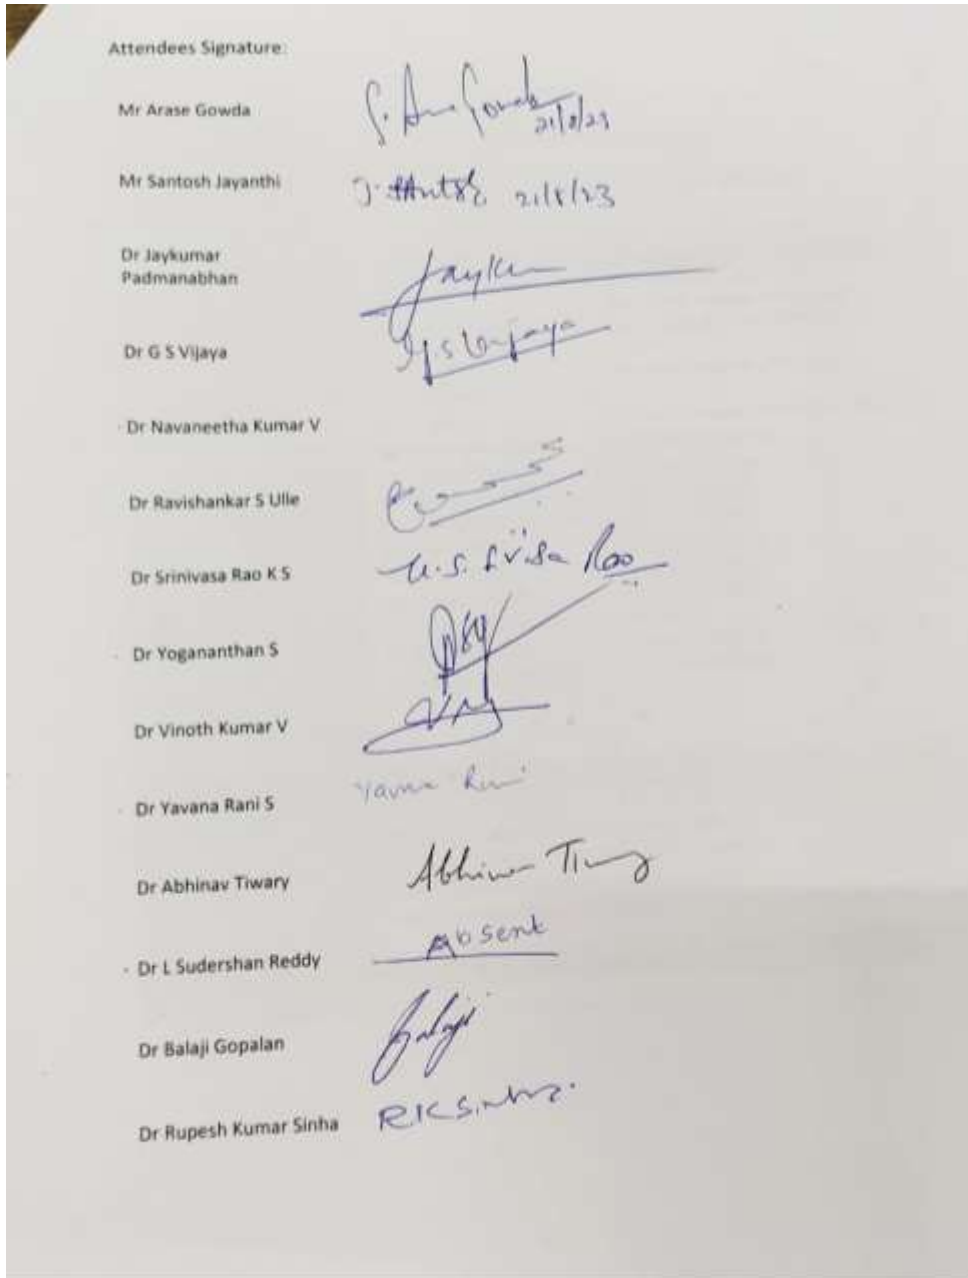 Attendees Signature:
Mr Arase Gowda
21/8/23
Mr Santosh Jayanthi
21/8/23
Dr Jaykumar
Padmanabhan
Dr G S Vijaya
G S Vijaya
Dr Navaneetha Kumar V
Dr Ravishankar S Ulle
Dr Srinivasa Rao K S
Rao
Dr Yogananthan S
Dr Vinoth Kumar V
Dr Yavana Rani S
Yavana Rani
Dr Abhinav Tiwary
Abhinav Tiwary
Dr L Sudershan Reddy
Absent
Dr Balaji Gopalan
Balaji
Dr Rupesh Kumar Sinha
R K Sinha.